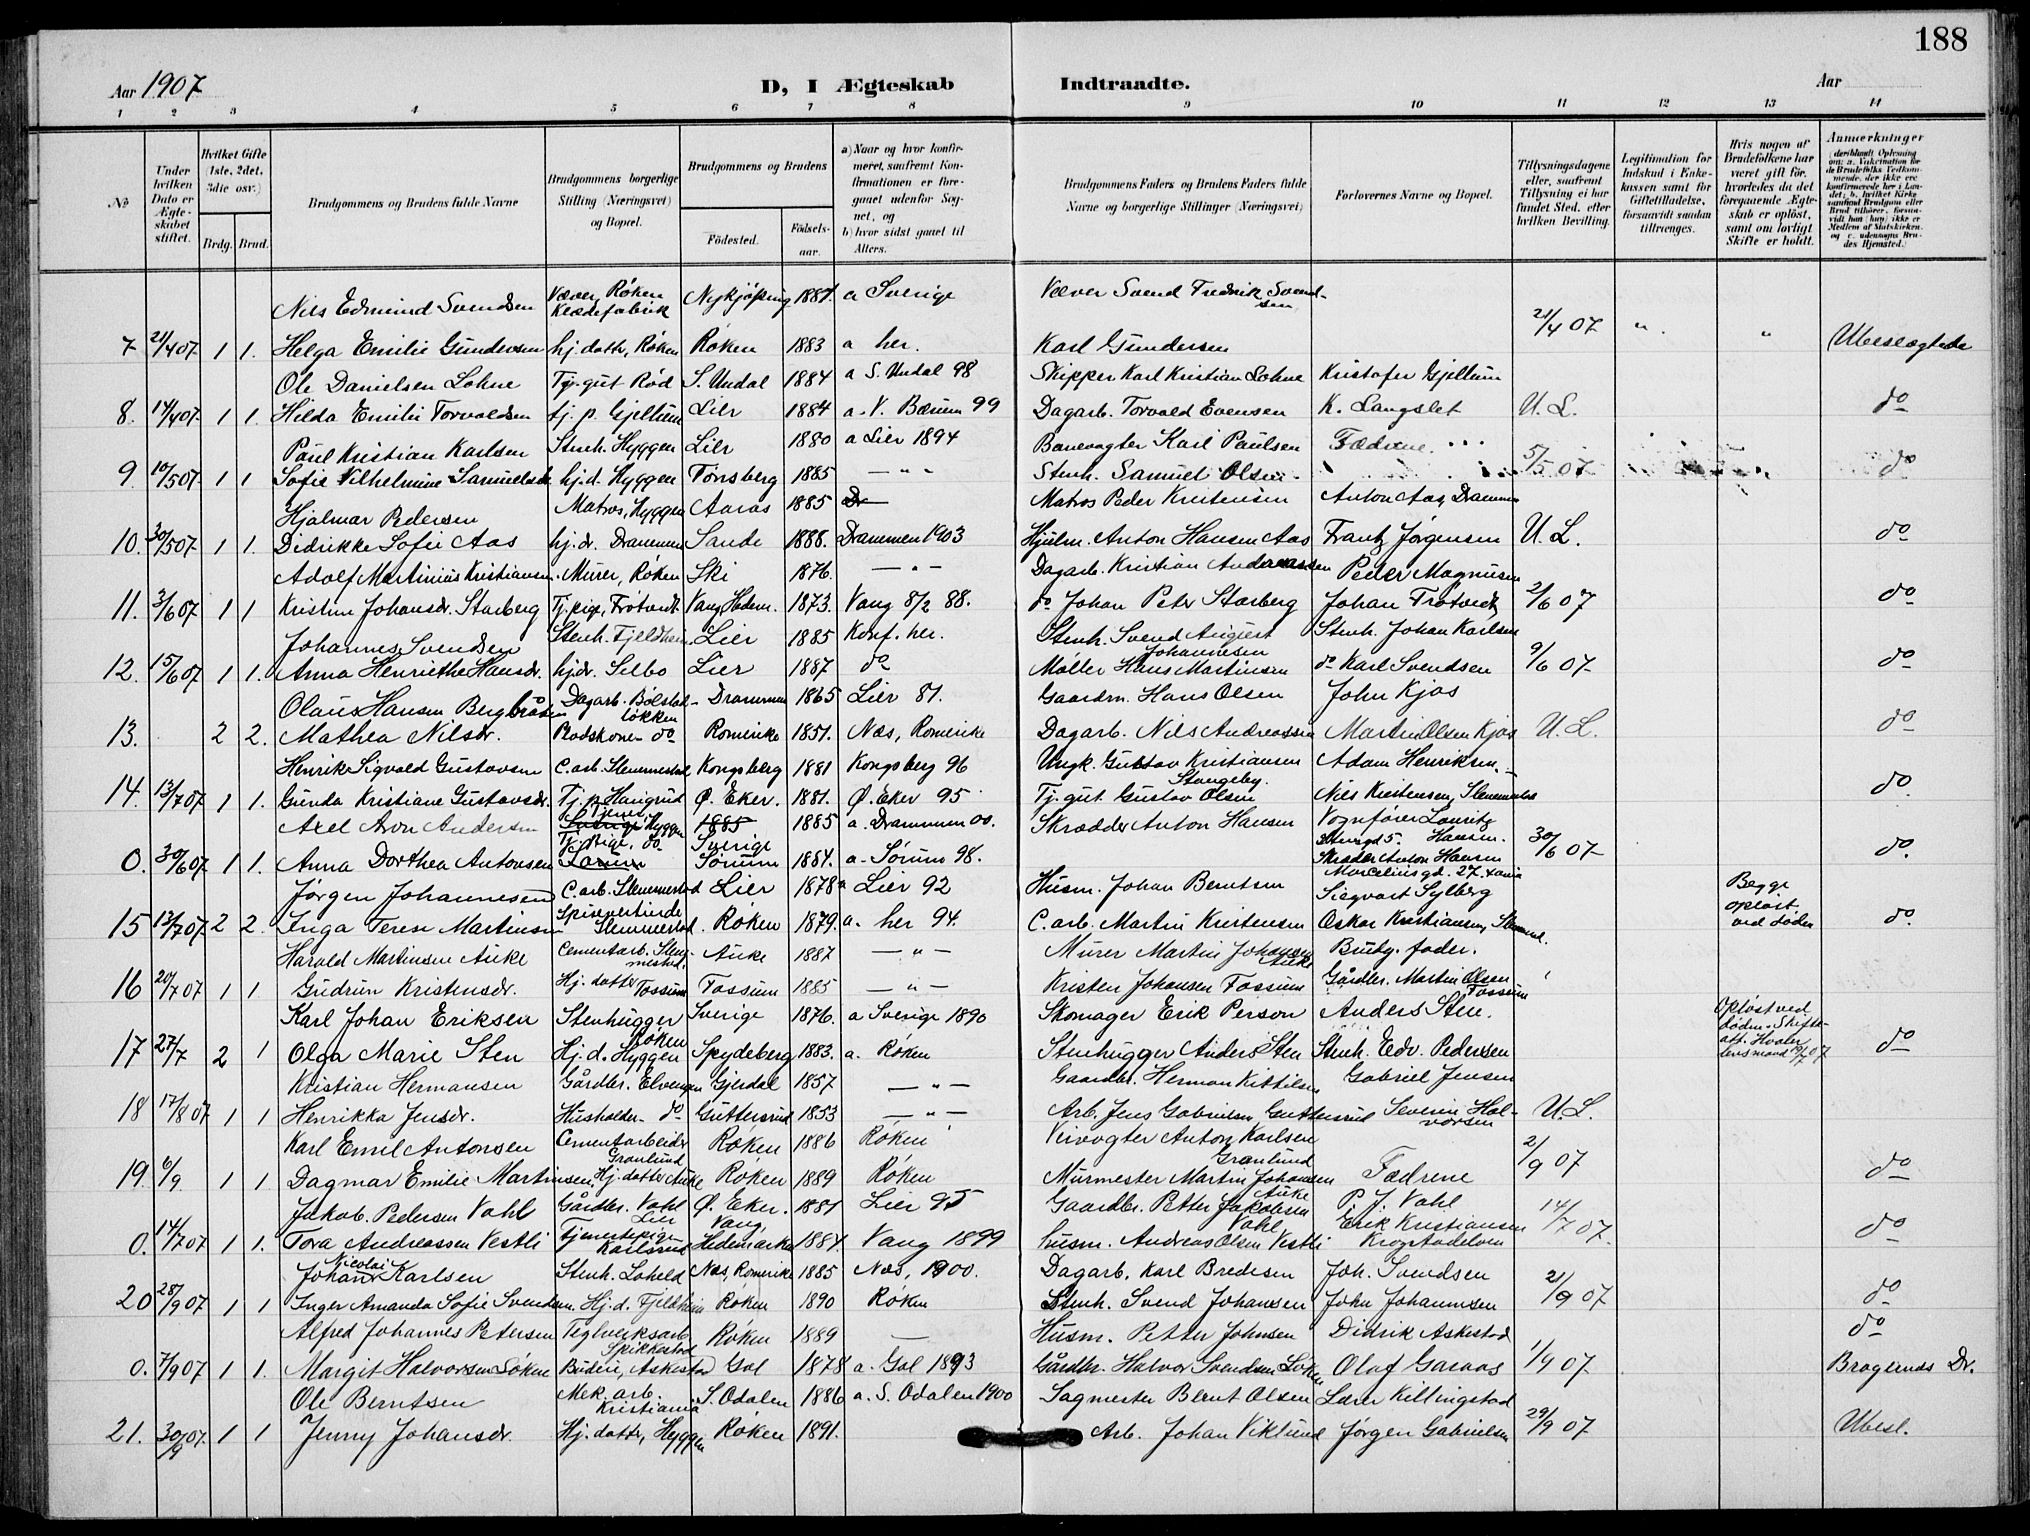 188
Aar 1907
D, I Ægteskab
Indtraadte.
Aar
1 2 3 4 5 6 7 8 9 10 11 12 13 14
No
Under hvilken Dato er Ægteskabet stiftet.
Hvilket Gifte (1ste, 2det, 3die osv.)
Brdg. Brud.
Brudgommens og Brudens fulde Navne
Brudgommens borgerlige Stilling (Næringsvei) og Bopæl.
Brudgommens og Brudens
Födested.
Födsels-aar.
a) Naar og hvor konfirmeret, saafremt Konfirmationen er foregaaet udenfor Sognet, og
b) hvor sidst gaaet til Alters.
Brudgommens Faders og Brudens Faders fulde Navne og borgerlige Stillinger (Næringsvei)
Forlovernes Navne og Bopæl.
Tillysningsdagene eller, saafremt Tillysning ei har fundet Sted, efter hvilken Bevilling.
Legitimation for Indskud i Enkekassen samt for Giftetilladelse, forsaavidt saadan tiltrænges.
Hvis nogen af Brudefolkene har været gift för, hvorledes da det foregaaende Ægteskab er oplöst, samt om lovligt Skifte er holdt.
Anmerkninger
Nils Edmund Svendsen Væver, Røken Klædefabrik Nykjøping 1884. a Sverige Væver Svend Fredrik Svendsen
7 21/4 07 1 1. Helga Emilie Gundersen hj. datter, Røken Røken 1883 a her. Karl Gundersen 21/4 07 " " Ubeslægtede
Ole Danielsen Lohne Tj. gut Rød S. Undal 1884 a S. Undal 98 Skipper Karl Kristian Lohne Kristofer Gjellum
8. 14/4 07. 1 1. Hilda Emilie Torvaldsen tj. p. Gjellum Lier 1884 a. V. Bærum 99 Dagarb. Torvald Evensen K. Langslet U. L. do
Paul Kristian Karlsen Stenh. Hyggen Lier 1880 a Lier 1894 Banevogter Karl Paulsen Fædrene
9 10/5 07 1 1 Sofie Vilhelmine Samuelsdr hj. d. Hyggen Tønsberg 1885 — " — Stenh. Samuel Olsen 5/5 07 do
Hjalmar Pedersen Matros, Hyggen Aaros 1885 Dr Matros Peder Kristensen Anton Aas, Drammen
10. 30/5 07. 1 1. Didrikke Sofie Aas hj. dr. Drammen Sande 1888. Drammen 1903 Hjulm. Anton Hansen Aas Frantz Jørgensen U. L. do
Adolf Martinius Kristiansen. Murer, Røken Ski 1876. — " — Dagarb. Kristian Andreassen Peder Magnusen
11. 3/6 07 1 1 Kristine Johansdr. Starberg Tj. pige, Frøtvedt. Vang, Hedem. 1873. Vang 8/2 88. do Johan Peter Starberg Johan Frøtvedt 2/6 07 do
Johannes Svendsen Stenh. Fjeldheim Lier 1885 Konf. her. Stenh. Svend August Johannesen Stenh. Johan Karlsen
12. 15/6 07 1 1. Anna Henriethe Hansdr. hj. dr. Selbo Lier 1887 do Møller Hans Martinsen do Karl Svendsen 9/6 07 do
Olaus Hansen Bergbråten Dagarb. Bølstadløkken Drammen 1865 Lier 81. Gaardm. Hans Olsen John Kjos
13. 2 2. Mathea Nilsdr. Rodskone do Romerike 1851. Næs, Romerike Dagarb. Nils Andreassen Martin Olsen Kjos U. L. do
Henrik Sigvald Gustavsen C. arb. Slemmestad Kongsberg 1881 Kongsberg 96 Ungk. Gustav Kristiansen Stangeby. Adam Henriksen
14. 13/7 07 1 1. Gunda Kristiane Gustavsdr. Tj. p. Haugrud Ø. Eker. 1881. Ø. Eker 95 Tj. gut Gustav Olsen Nils Kristensen, Slemmestad do.
Axel Aron Andersen Tjenes. Sverige Hyggen 1885 Sverige 1885 a. Drammen 00. Skrædder Anton Hansen Vognfører Lauritz Hansen.
0. 30/6 07 1 1. Anna Dorthea Antonsen Tj. pige, do Sørum Sørum 1884. a. Sørum 98. Skræder Anton Hansen Marcelinsgd. 27. Kania 30/6 07 do.
Jørgen Johannesen C. arb. Slemmestad Lier 1878 a Lier 92 Husm. Johan Berntsen Siegvart Sylberg
15 13/7 07 2 2. Inga Terese Martinsen Spisevertinde Slemmestad. Røken 1879. a. her 94. C. arb. Martin Kristensen Oskar Kristiansen, Slemmd. Begge opløst ved døden do.
Harald Martinsen Auke Cementarb. Slemmestad. Auke 1887 — " — Murer Martin Johansen Auke Brudg. fader.
16 20/7 07 1 1 Gudrun Kristensdr. Hj. datter Fossum Fossum 1885 — " — Kristen Johansen Fossum Gårdbr. Martin Olsen Fossum
Karl Johan Eriksen Stenhugger Røken Sverige 1876. a Sverige 1890 Skomager Erik Person Anders Sten.
17 27/7 2 1 Olga Marie Sten Hj. d. Hyggen Spydeberg 1883. a. Røken Stenhugger Anders Sten Stenh. Edv. Pedersen Opløst ved døden. Skifteatt. Hvaler lensmand 19/7 07 do
Kristian Hermansen Gårdbr. Elvengen Gjerdal 1857 — " — Gaardbr. Herman Kittilsen Gabriel Jensen
18 17/8 07 1 1 Henrikka Jensdr. Husholder. do Guttersrud 1853 — " — Arb. Jens Gabrielsen Guttersrud Severin Halvorsen U. L.
Karl Emil Antonsen Cementarbeider Granlund Røken 1886 Røken Veivogter Anton Karlsen Granlund
19. 6/9 1 1. Dagmar Emilie Martinsen, Hj. datter Auke Røken 1889 Røken Murmester Martin Johansen Auke Fædrene 2/9 07 do
Jakob. Pedersen Vahl Gårdbr. Vahl Lier Ø. Eker. 1881 Lier 95 Gaardbr. Petter Jakobsen Vahl P. J. Vahl
0. 14/7 07 1 1. Tora Andreassen Vestli Tjenestepige Karlsrud Vang, Hedemarken 1884. Vang 1899 husm. Andreas Olsen Vestli Erik Kristiansen Krogstadelven 14/7 07. do
Johan Nicolai Karlsen Stenh. Loheld Næs, Romerike 1885 Næs, 1900. Dagarb. Karl Bredesen Joh. Svendsen
20 28/9 07 1 1 Inger Amanda Sofie Svendsen. Hj. d. Fjeldheim Røken 1890 Røken Stenh. Svend Johansen John Johannesen 21/9 07 do
Alfred Johannes Petersen Teglverksarb. Spikkestad Røken 1889 — Husm. Petter Johnsen Didrik Askestad do
0. 7/9 07 1 1. Margit Halvorsen Løken Budeie, Askestad Gol 1878 a. Gol 1893 Gårdbr. Halvor Svendsen Løken Olaf Garaas 1/9 07 Bragernes Dr.
Ole Berntsen Mek. arb. Kristiania S. Odalen 1886 a. S. Odalen 1900 Sagmester Bernt Olsen Lærer Killingstad
21. 30/9 07. 1 1 Jenny Johansdr. Hj. datter, Hyggen Røken 1891. Arb. Johan Viklund Jørgen Gabrielsen 29/9 07 Ubesl.